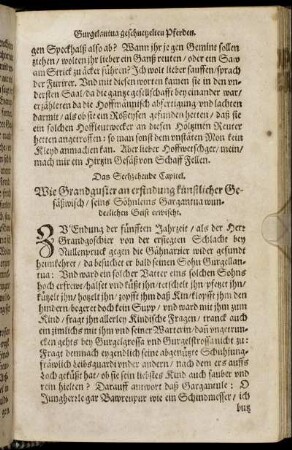 Gurgelantua geschnetzelten Pferden.
gen Speckhalß also ab? Wann jhr je gen Gemint sollen
ziehen / wolten jhr lieber ein Ganß reuten / oder ein Saw
am Strick zu acker führen? Ich wolt lieber sauffen / sprach
der Furirer. Und mit diesen worten kamen sie in den vn-
dersten Saal / da die gantze gesellschafft bey einander war /
erzähleten da die Hoffmännisch abfertigung vnd lachten
darmit / als ob sie ein Roßeysen gefunden hetten / daß sie
ein solchen Hoffleutwecker an diesen Höltzinin Reuter
hetten angetroffen: so man sonst den vnstäten Mon kein
Kleyd anmachen kan. Aber lieber Hoffwetschger / mein /
mach mir ein Hirzin Gesäß von Schaff Fellen.
Das Sechzehende Capitel.
Wie Grandgusier an erfindung künstlicher Ge-
säßwisch / seins Söhnleins Gargantua wun-
derlichen Geist erwischt.
ZV Endung der fünfften Jahrzeit / als der Herr
Grandgoschier von der ersiegten Schlacht bey
Nullenpruck gegen die Gähnarrier wider gesundt
heimkehrt / da besuchet er bald seinen Sohn Gurgellan-
tua: Vnd ward ein solcher Vatter eins solchen Sohns
hoch erfrewt / halset vnd küßt jhn / tettschelt jhn / pfetzt jhn /
kützelt jhn / hotzelt jhn / zopfft jhm daß Kin / klopfft jhm den
hindern begert doch kein Supp / vnd ward mit jhm zum
Kind / fragt jhn allerley Kindische Fragen / tranck auch
ein zimlichs mit jhm vnd seiner Warterin / daß vngetrun-
cken gehts bey Gurgelgrossa vnd Gurgelstrossa nicht zu:
Fragt demnach eygendlich seine abgenützte Schuhjung-
fräwlich Leibsguardi vnder andern / nach dem ers auffs
hoch gefüßt hat / ob sie sein liebstes Kind auch sauber vnd
rein hielten? Darauff antwort daß Gargantule: O
Jungherrle gar Bawrenpur wie ein Schindmesser / ich
butz